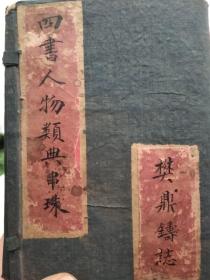 四書人物類典串珠
樊鼎鑄誌